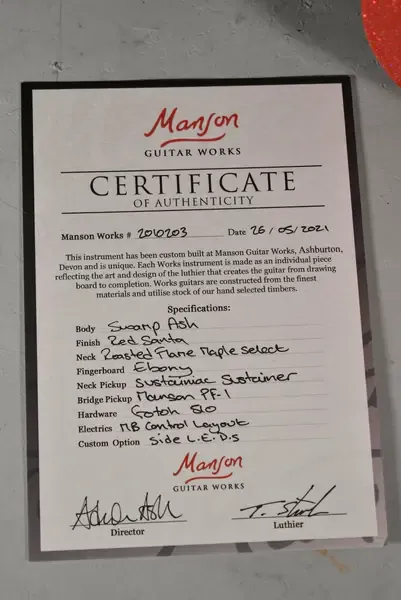 Manson
GUITAR WORKS
CERTIFICATE
OF AUTHENTICITY
Manson Works # 2010203 Date 26/05/2021
This instrument has been custom built at Manson Guitar Works, Ashburton,
Devon and is unique. Each Works instrument is made as an individual piece
reflecting the art and design of the luthier that creates the guitar from drawing
board to completion. Works guitars are constructed from the finest
materials and utilise stock of our hand selected timbers.
Specifications:
Body Swamp Ash
Finish Red Santa
Neck Roasted Flame Maple Select
Fingerboard Ebony
Neck Pickup Sustainiac Sustainer
Bridge Pickup Manson PF-1
Hardware Gotoh 510
Electrics MB Control Layout
Custom Option Side L.E.D.s
Manson
GUITAR WORKS
Director Luthier